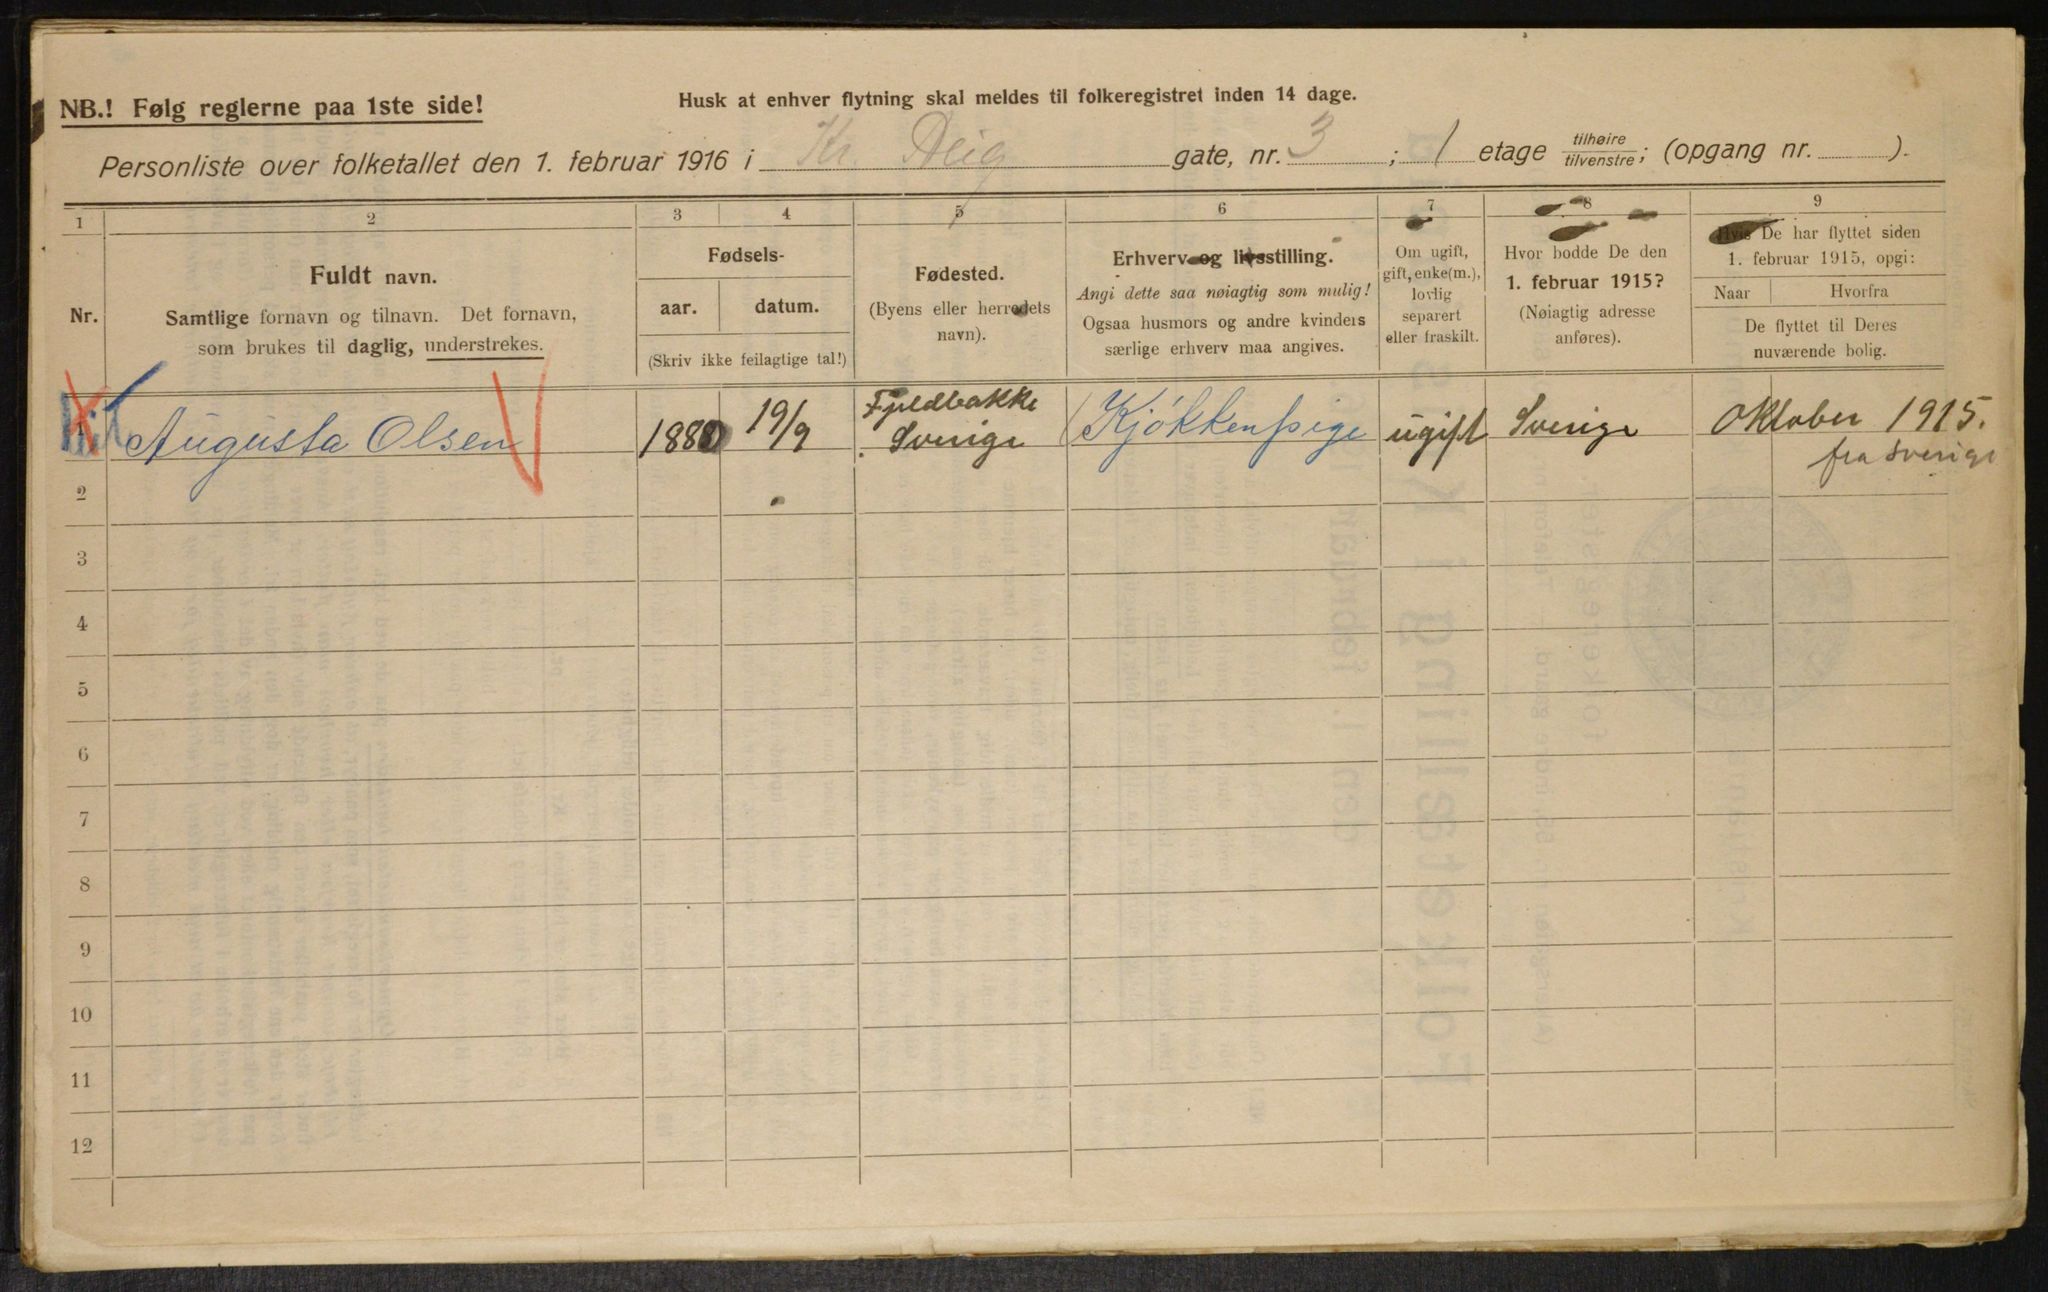 NB.! Følg reglerne paa 1ste side!
Husk at enhver flytning skal meldes til folkeregistret inden 14 dage.
Personliste over folketallet den 1. februar 1916 i Kr. gate, nr. 3 ; 1 etage tilhøire tilvenstre; (opgang nr. ).
1 2 3 4 5 6 7 8 9
Nr.
Fuldt navn.
Samtlige fornavn og tilnavn. Det fornavn,
som brukes til daglig, understrekes.
Fødsels-
aar. datum.
(Skriv ikke feilagtige tal!)
Fødested.
(Byens eller herredets
navn).
Erhverv og livsstilling.
Angi dette saa nøiagtig som mulig!
Ogsaa husmors og andre kvinders
særlige erhverv maa angives.
Om ugift,
gift, enke(m.),
lovlig
separert
eller fraskilt.
Hvor bodde De den
1. februar 1915?
(Nøiagtig adresse
anføres).
Hvis De har flyttet siden
1. februar 1915, opgi:
Naar Hvorfra
De flyttet til Deres
nuværende bolig.
1 Augusta Olsen 1880 19/9 Fjeldbakke Sverige Kjøkkenpige ugift Sverige Oktober 1915.
fra Sverige
2
3
4
5
6
7
8
9
10
11
12